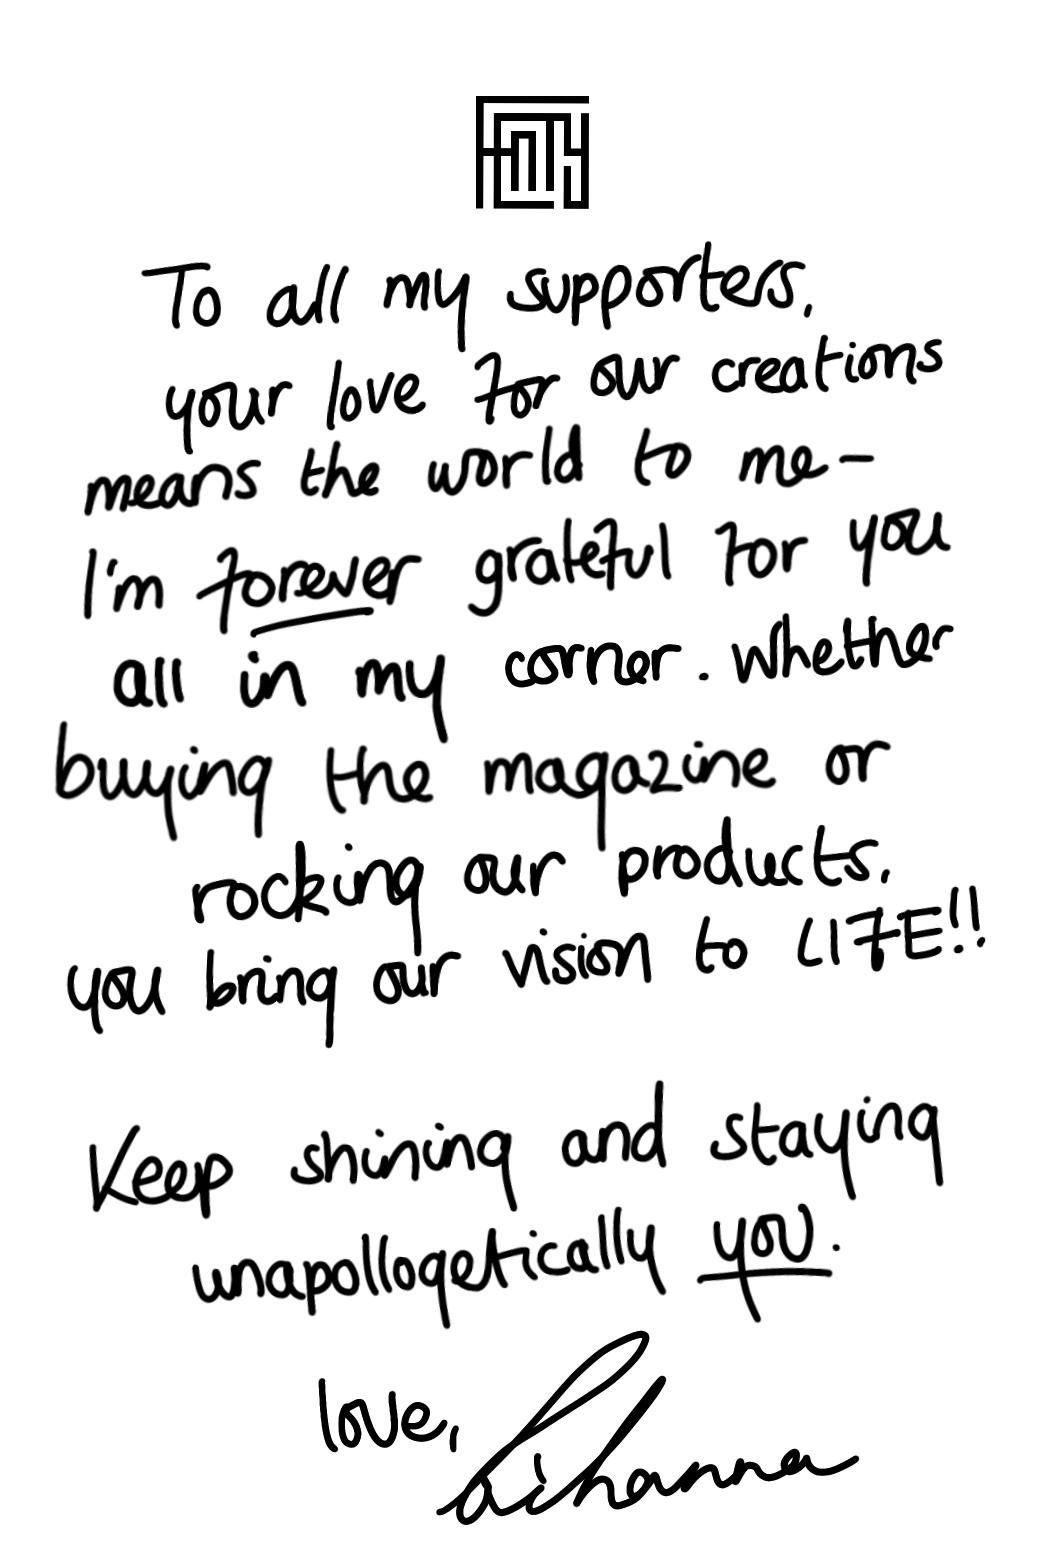 FNTY
To all my supporters,
your love for our creations
means the world to me-
I'm forever grateful for you
all in my corner. Whether
buying the magazine or
rocking our products,
you bring our vision to LIFE!!
Keep shining and staying
unapollogetically you.
love,
Rihanna